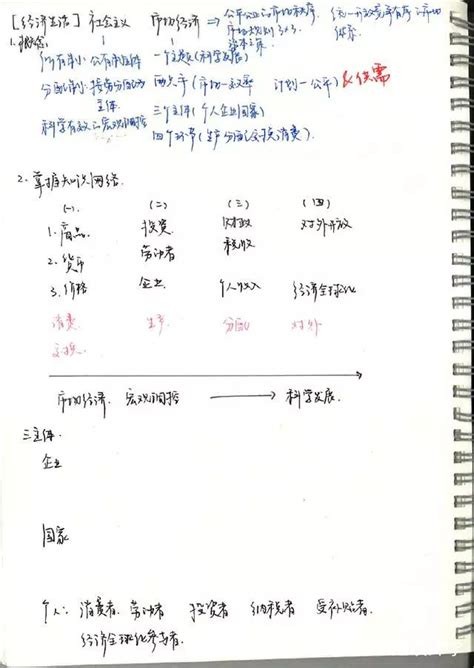 [经济生活] 社会主义 市场经济 → 公平公正的市场秩序. 统一开放竞争有序的市场体系.
1.
所有制: 公有制主体 一个主题(科学发展)
分配制: 按劳分配为主体 两只手(市场—效率 计划—公平) &供需
三个主体(个人企业国家)
科学有效的宏观调控 四个环节(生产分配交换消费).
2. 掌握知识网络.
(一) (二) (三) (四)
1.商品 投资 财政 对外开放
2.货币 劳动者 税收
3.价格 企业 个人收入 经济全球化
消费 生产 分配 对外
交换
市场经济. 宏观调控 → 科学发展.
三主体.
企业
国家
个人: 消费者. 劳动者 投资者 纳税者 受补贴者.
经济全球化参与者.